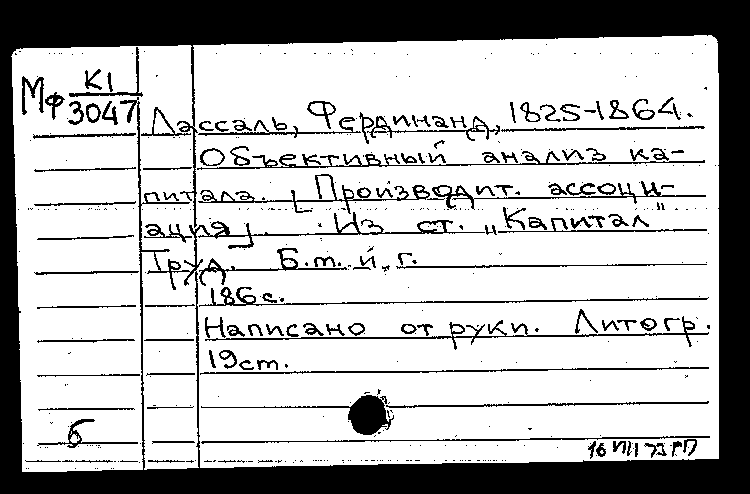 Мф К1
3047
Лассаль, Фердинанд, 1825-1864.
Объективный анализ ка-
питала. [Производит. ассоци-
ация]. Из ст. „Капитал"
Труд. Б.м. и г.
186 с.
Написано от руки. Литогр.
19 ст.
б
16 VIII 73